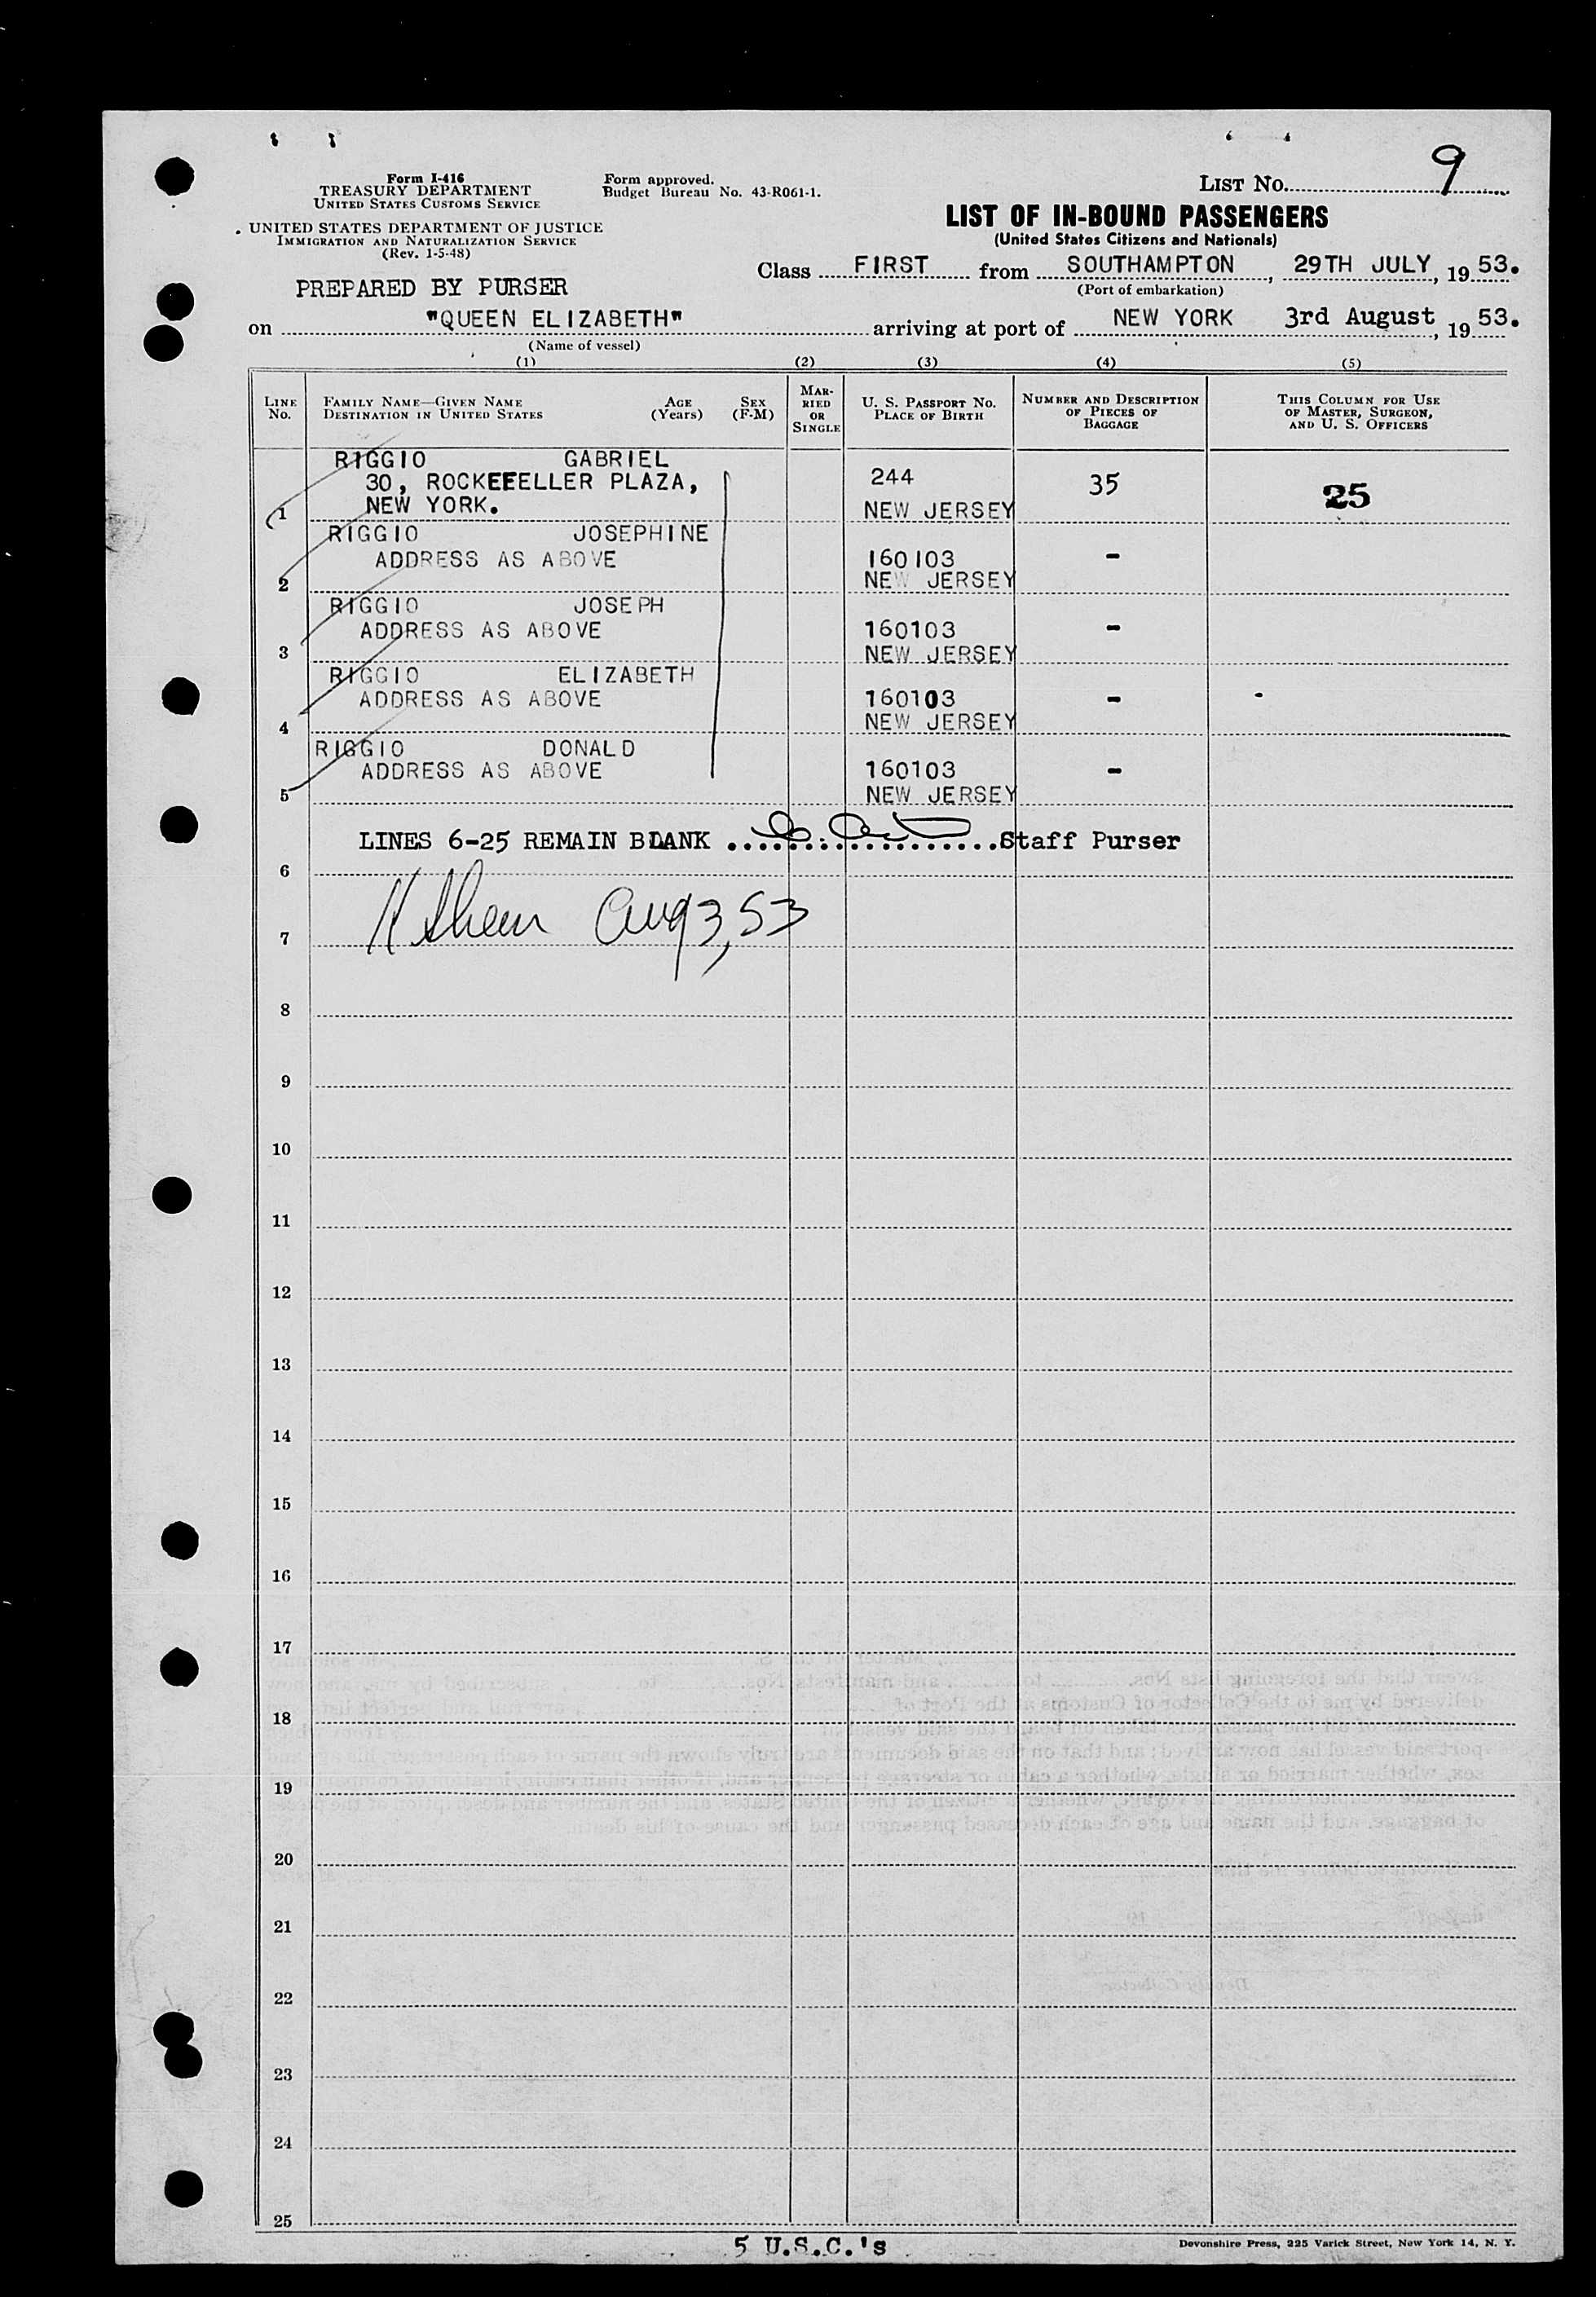 Form I-416
TREASURY DEPARTMENT
UNITED STATES CUSTOMS SERVICE
UNITED STATES DEPARTMENT OF JUSTICE
IMMIGRATION AND NATURALIZATION SERVICE
(Rev. 1-5-48)
Form approved.
Budget Bureau No. 43-R061-1.
LIST No. 9
LIST OF IN-BOUND PASSENGERS
(United States Citizens and Nationals)
PREPARED BY PURSER
Class FIRST from SOUTHAMPTON, 29TH JULY, 1953.
(Port of embarkation)
on "QUEEN ELIZABETH" arriving at port of NEW YORK 3rd August, 1953.
(Name of vessel)
(1) (2) (3) (4) (5)
LINE No. FAMILY NAME—GIVEN NAME DESTINATION IN UNITED STATES AGE (Years) SEX (F-M) MARRIED OR SINGLE U. S. PASSPORT No. PLACE OF BIRTH NUMBER AND DESCRIPTION OF PIECES OF BAGGAGE THIS COLUMN FOR USE OF MASTER, SURGEON, AND U. S. OFFICERS
RIGGIO GABRIEL
30, ROCKEFELLER PLAZA, 244 35 25
1 NEW YORK. NEW JERSEY
RIGGIO JOSEPHINE
ADDRESS AS ABOVE 160103 -
2 NEW JERSEY
RIGGIO JOSEPH
ADDRESS AS ABOVE 160103 -
3 NEW JERSEY
RIGGIO ELIZABETH
ADDRESS AS ABOVE 160103 -
4 NEW JERSEY
RIGGIO DONALD
ADDRESS AS ABOVE 160103 -
5 NEW JERSEY
LINES 6-25 REMAIN BLANK ................... Staff Purser
6
7 Aug 3, 53
8
9
10
11
12
13
14
15
16
17
18
19
20
21
22
23
24
25
5 U.S.C.'s
Devonshire Press, 225 Varick Street, New York 14, N. Y.